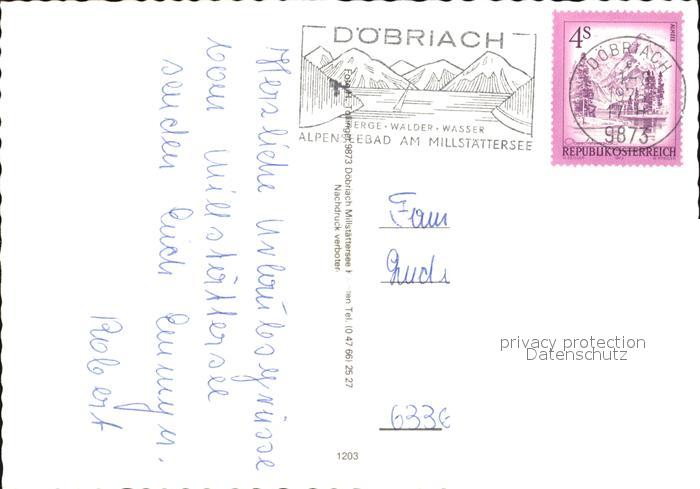 Herzliche Urlaubsgrüsse
vom Millstättersee
senden Euch Emmy u.
Robert
DÖBRIACH
BERGE · WÄLDER · WASSER
ALPENSEEBAD AM MILLSTÄTTERSEE
4S
ALMSEE
REPUBLIK ÖSTERREICH
DÖBRIACH
9873
9873 Döbriach Millstättersee
Tel. (0 47 66) 25 27
Nachdruck verboten
Fam
privacy protection
Datenschutz
633
1203